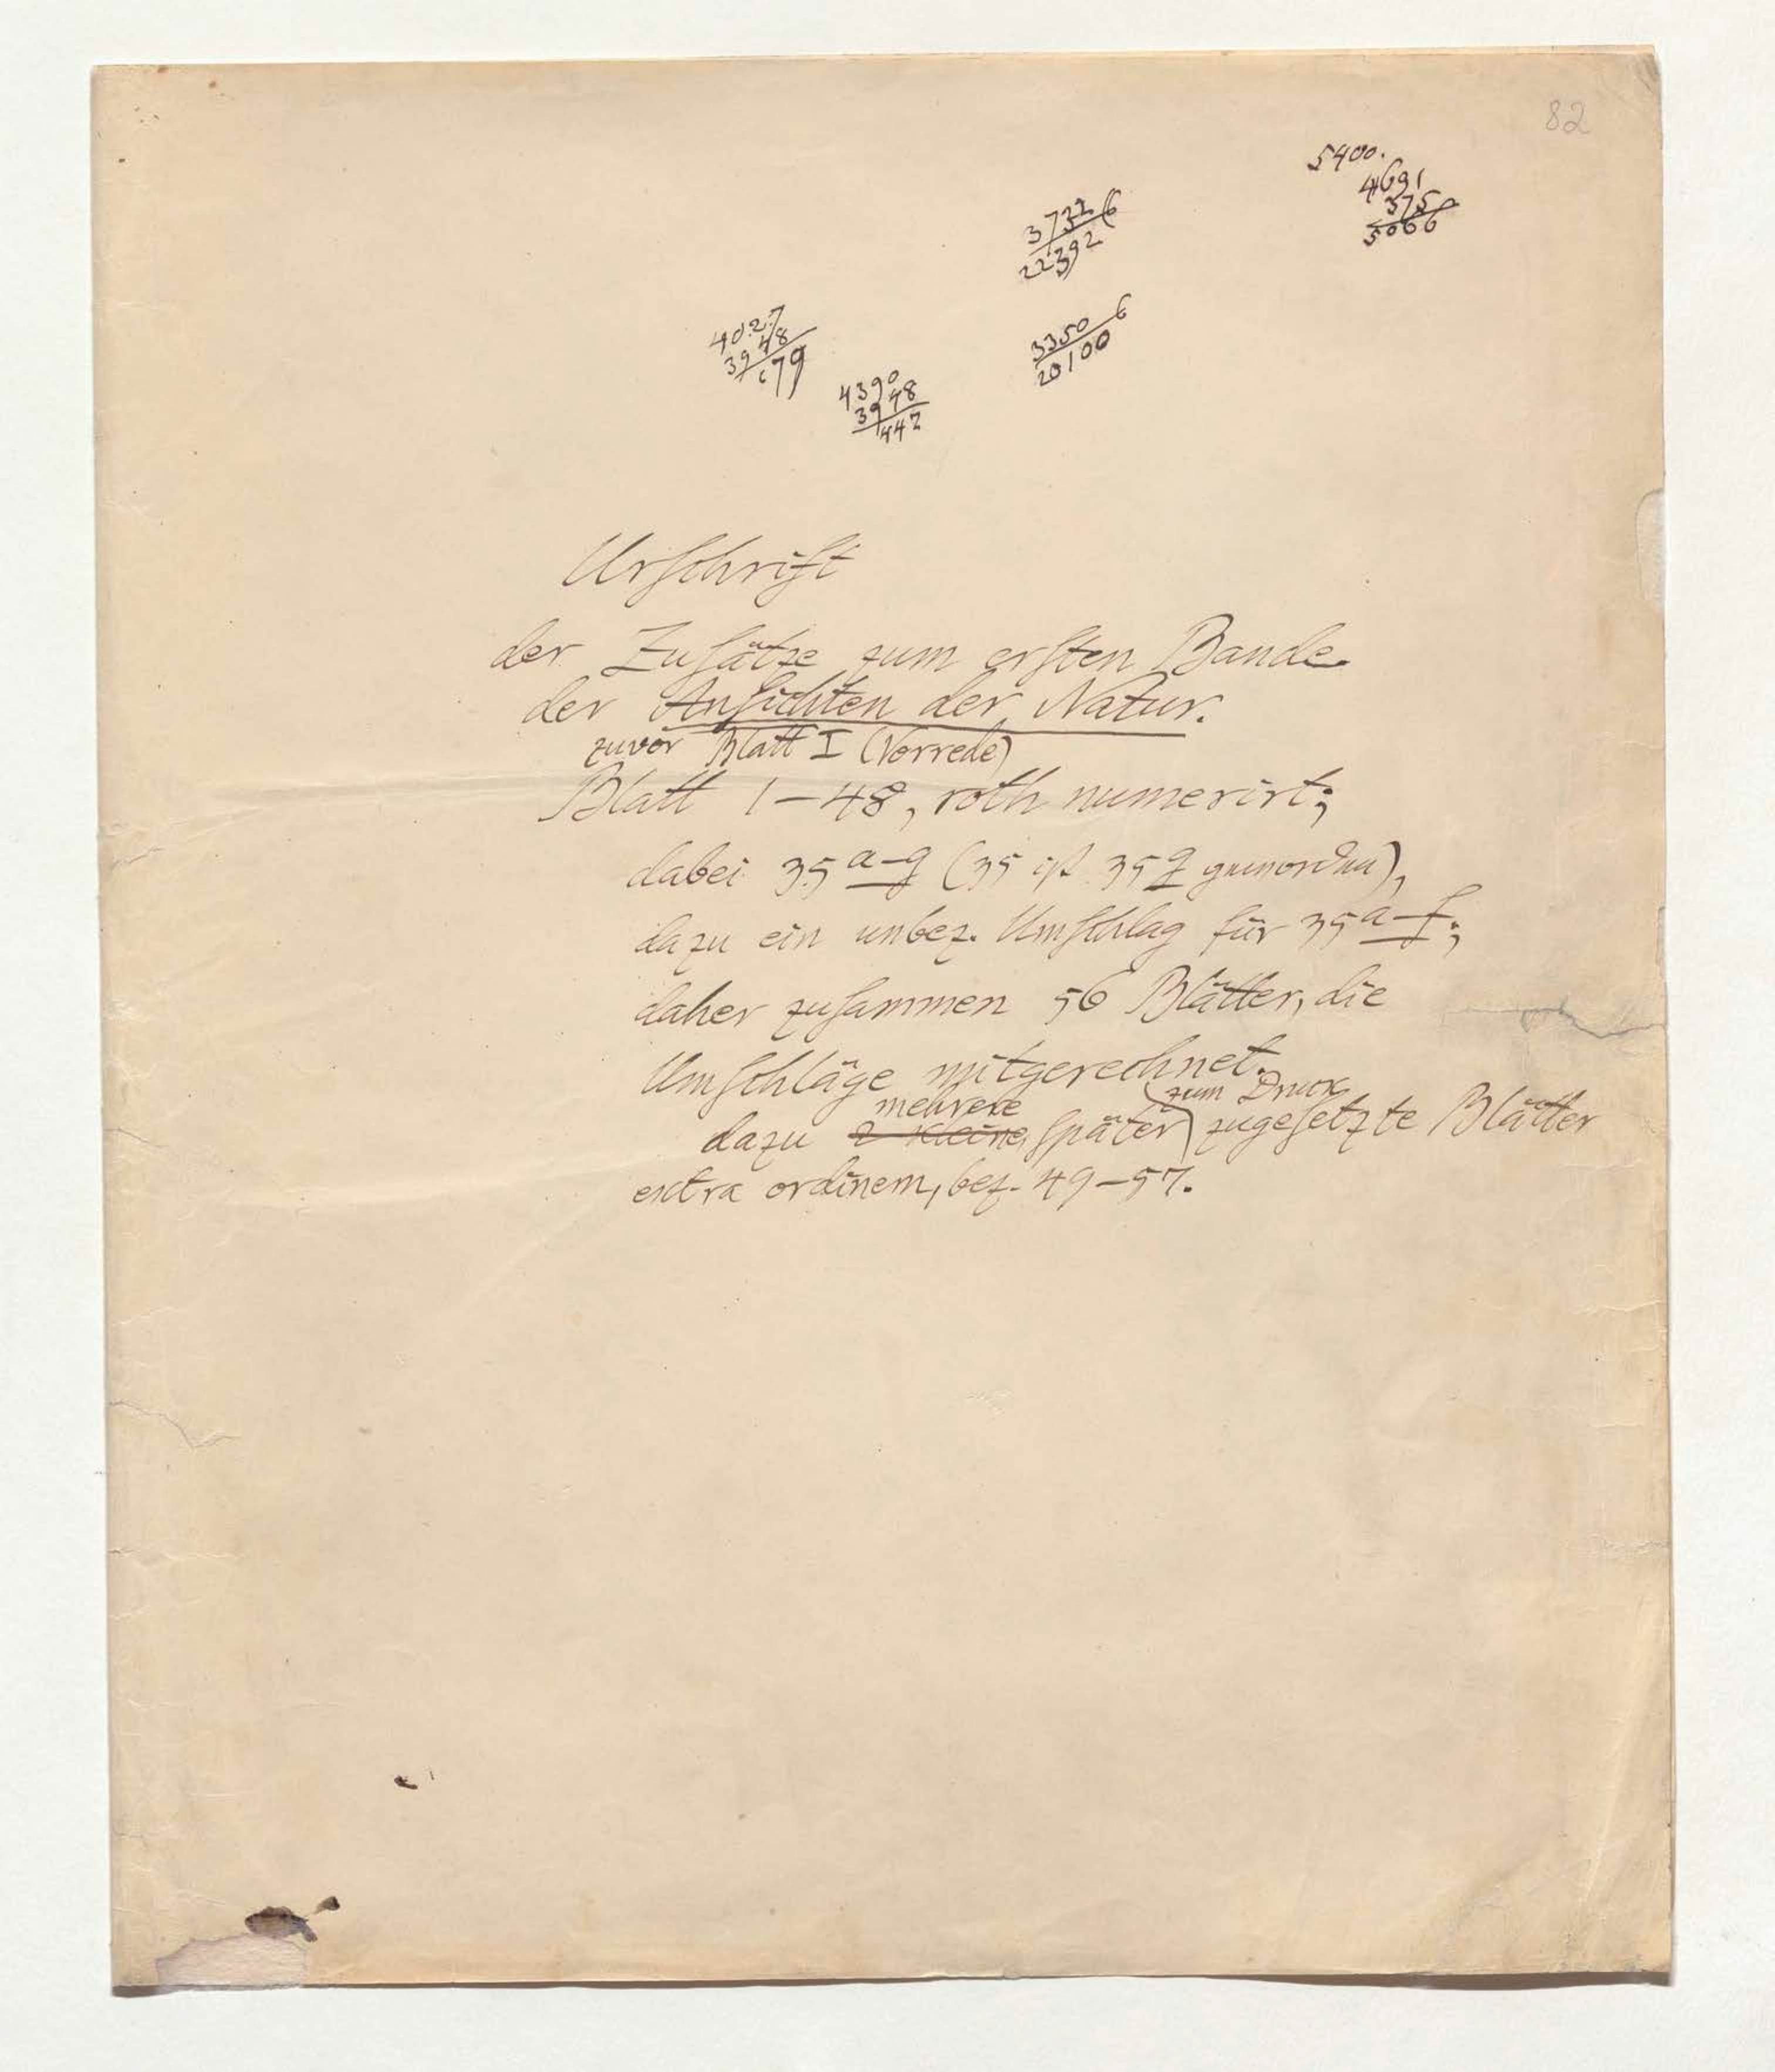 82
5400.
4691
375
5066
3732 6
22392
4027
3948
79
3350 6
20100
4390
3948
442
Urschrift
der Zusätze zum ersten Bande
der Ansichten der Natur.
zuvor Blatt I (Vorrede)
Blatt 1–48, roth numerirt;
dabei 35 a–g (35 ist 35 g geworden),
dazu ein unbez. Umschlag für 35 a–f;
daher zusammen 56 Blätter, die
Umschläge mitgerechnet.
mehrere zum Druck
dazu 2 kleine später zugesetzte Blätter
extra ordinem, bez. 49–57.